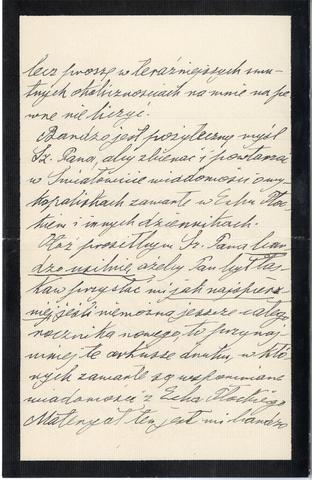 lecz proszę w teraźniejszych smu-
tnych okolicznościach na mnie na pe-
wne nie liczyć.
Bardzo jest pożyteczny myśl
Sz. Pana, aby zbierać i powtarzać
w Światowicie wiadomości o wy-
kopaliskach zawarte w Echu Płoc-
kiem i innych dziennikach.
Otóż prosiłbym Sz. Pana bar-
dzo usilnie, ażeby Pan był łas-
kaw przysłać mi jak najspiesz-
niej jeśli nie można jeszcze całego
rocznika nowego, to przynaj-
mniej te arkusze druku, w któ-
rych zawarte są wspomniane
wiadomości z Echa Płockiego
Materyał ten jest mi bardzo